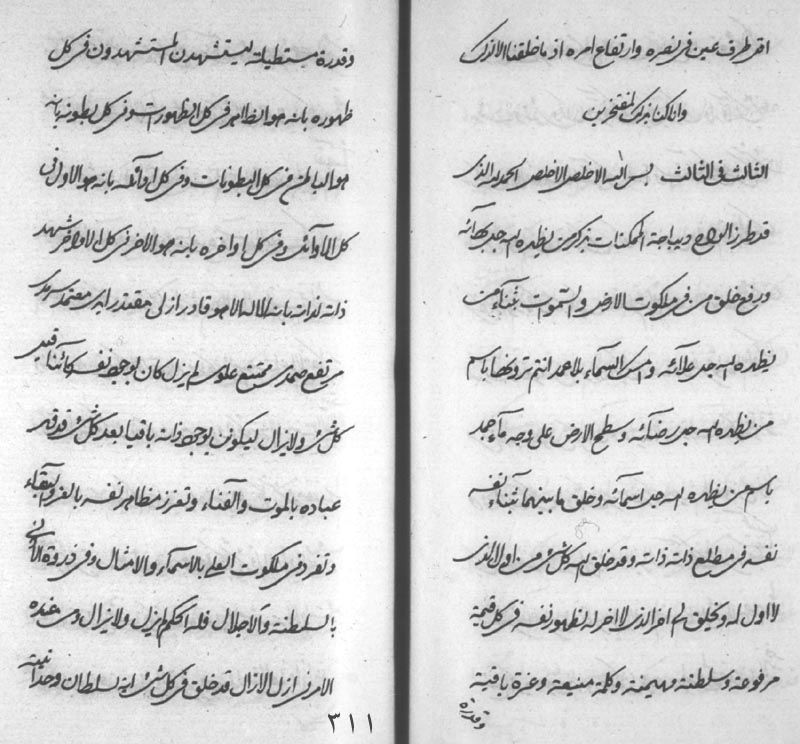 اقر طرف عين فى نصره وارتفاع امره اذ ما خلقنا الا لذلك
وانا كنا بذلك لمفتخرين
الثالث فى الثالث بسم الله الاخلص الاخلص الحمد لله الذى
قد طرز الواح ديباجة الممكنات بذكر من يظهره الله جل بهائه
ورفع خلق من فى ملكوت الارض والسموات بثناء من
يظهره الله جل علائه وامسك السماء بلا عمد انتم ترونها باسم
من يظهره الله جل رضائه وسطح الارض على وجه ماء جمد
باسم من يظهره الله جل اسمائه وخلق ما بينهما بثناء نفسه
نفسه فى مطلع ذاته ذاته وقد خلق الله كل شىء من اول الذى
لا اول له ويخلق الى اخر الذى لا اخر له لظهور نفسه فى كل قيمة
مرفوعة وسلطنة مهيمنة وكلمة منيعة وعزة باقية
وقدرة
وقدرة مستطيلة ليستشهدن المستشهدون فى كل
ظهوره بانه هو الظاهر فى كل الظهورات وفى كل بطونه بانه
هو الباطن فى كل البطونات وفى كل اوائله بانه هو الاول فى
كل الاوائل وفى كل اواخره بانه هو الاخر فى كل الاواخر شهد
ذاته لذاته بانه لا اله الا هو قادر ازلى مقتدر ابدى معتمد سرمدى
مرتفع صمدى ممتنع علوى لم يزل كان بوجهة نفسه كائنا قبل
كل شىء ولا يزال ليكونن بوجهة ذاته باقيا بعد كل شىء قد قهر
عباده بالموت والفناء وتعزز مظاهر نفسه بالعز والبقاء
وتفرد فى ملكوت العلى بالاسماء والامثال وفى ذروة الاعلى
بالسلطنة والاجلال فله الحكم لم يزل ولا يزال ومن عنده
الامر فى ازل الازال قد خلق فى كل شىء اية لسلطان وحدانيته
٣١١